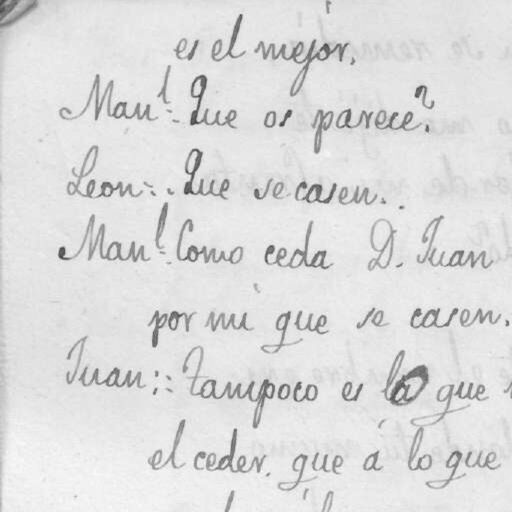 es el mejor.
Man.l Que os parece?
Leon.. Que se casen..
Man.l Como ceda D. Juan
por mi que se casen.
Juan:: Tampoco es la que
el ceder. que á lo que